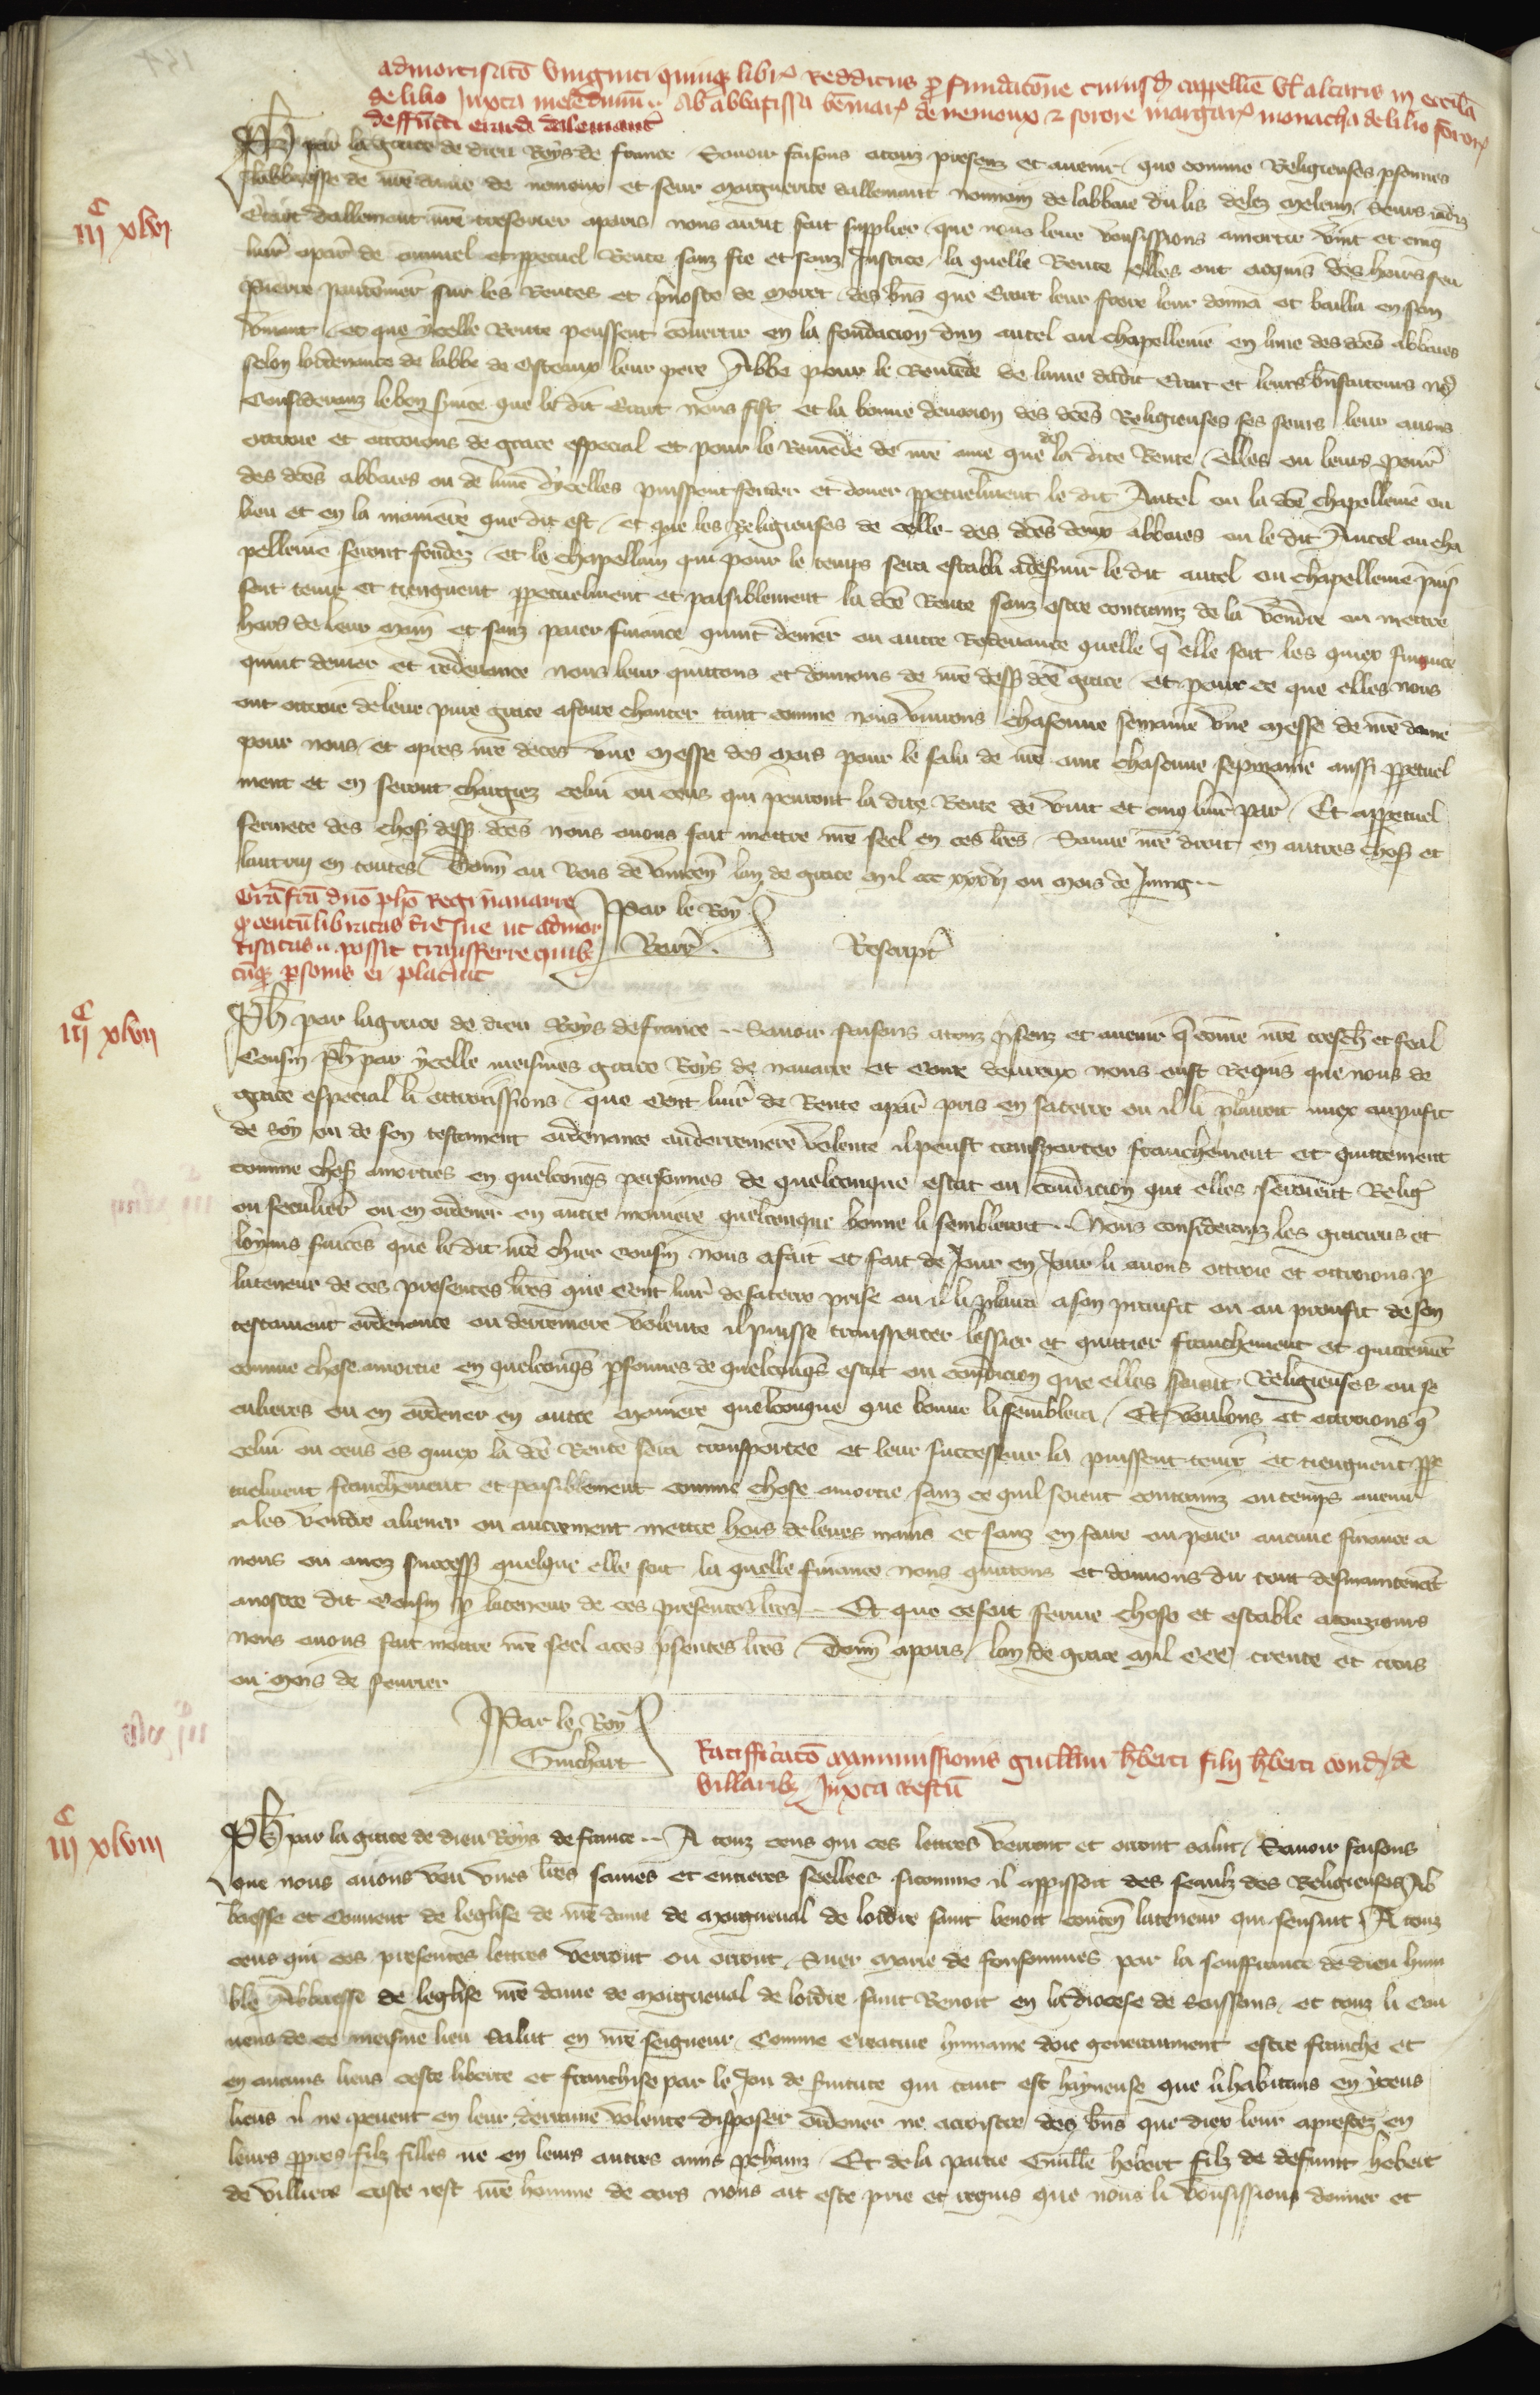 admortisatio viginti quinque libr. redditus pro fundatione cuiusd cappellie vel altaris in ecclesia
de lilio Juxta meledunum .. ab abbatissa be marie de nemoux et sorore margar. monacha de lilio soror.
deffuncti erardi dalemant
iiic xlvi
Ph par la grace de dieu Roys de france Savoir faisons a touz presenz et avenir que comme Religieuses psonnes
labbaesse de nre dame de nemoux et seur marguerite dallemant nonnain de labbaie du lis delez meleun seurs iadiz
Erart dallemant nre tresorier a paris nous aient fait supplier que nous leur vousissions amortir vint et cinq
livr a par de annuel et ppetuel Rente sanz fie et sanz Justice la quelle Rente elles ont acquis des hoirs feu
Pierre sur les Rentes et pvoste de moret des bns que Erart leur frere leur donna et bailla en son
vivant et que ycelle Rente peussent convertir en la fondacion dun autel ou chapellenie en lune des dces abbaies
selon lordenance de labbe de Cisteaux leur pere Abbe pour le Remede de lame dudit Erart et leurs bnfaiteurs nos
Considerans le bon service que le dit Erart nous fist et la bonne devocion des dces Religieuses ses seurs leur avons
ottroie et ottroions de grace especial et pour le Remede de nre ame que de la dite Rente elles ou leurs pour
des dces abbaies ou de lune dycelles puissent fonder et doner ppetuelment le dit Autel ou la dce chapellenie ou
lieu et en la maniere que dit est et que les Religieuses de celle des dces deux abbaies ou le dit Autel ou cha
pellenie seront fondez et le chapellain qui pour le temps sera establi a deservir le dit autel ou chapellenie puis
sent tenir et tiengnent ppetuelment et paisiblement la dce Rente sanz estre contrains de la vendre ou mettre
hors de leur main et sanz paier finance quint denier ou autre Redevance quelle que elle soit les quiex finance
quint denier et redevance nous leur quittons et donnons de nre dess dce grace et pour ce que elles nous
ont ottroie de leur pure grace a faire chanter tant comme nous vivrons chascune semaine une messe de nre dame
pour nous et apres nre deces une messe des mors pour le salu de nre ame chascune sepmaine aussi ppetuel
ment et en seront chargiez celui ou ceus qui penront la dite Rente de vint et cinq livr par Et a ppetuel
fermete des chos dess dces nous avons fait mettre nre seel en ces lres Sauve nre droit en autres chos et
lautrui en toutes Donn au Bois de Vincen lan de grace mil ccc xxxiii ou mois de Juing ..
Par le Roy
Rescript
Gra fca dno pho Regi navarre
quod centum libratas terre sue ut admor
tisatas possit transferre quib
cumque psonis ei placuit
iiic xlvii
Ph par la grace de dieu Roys de france .. Savoir faisons a touz psenz et avenir que comme nre treschr et feal
Cousin Ph par ycelle meismes grace Roys de navarre et Conte devreux nous eust Requis que nous de
grace especial li ottroissions que Cent livr de Rente a par pris en sa terre ou il li plairoit miex au pufit
de soy ou de son testament ordenance ou derreniere volente il peust transporter franchement et quittement
comme chos amorties en quelconqs personnes de quelconque estat ou condicion que elles seroient Relig
ou seculier ou en ordener en autre maniere quelconque bonne li sembleroit .. Nous considerans les gracieus et
loyaus services que le dit nre chier cousin nous a fait et fait de Jour en Jour li avons ottroie et ottroions p
la teneur de ces presentes lres que Cent livr de sa terre prise ou il li plaira a son proufit ou au proufit de son
testament ordenance ou derreniere volente il puisse transporter lessier et quittier franchement et quittement
comme chose amortie en quelconqs psonnes de quelconqs estat ou condicion que elles soient Religieuses ou se
culieres ou en ordener en autre maniere quelconque que bonne li semblera Et voulons et ottroions que
celui ou ceus es quiex la dce Rente sera transportee et leur successeur la puissent tenir et tiengnent ppe
tuelment franchement et paisiblement comme chose amortie sanz ce quil soient contrains ou temps avenir
a les vendre aliener ou autrement mettre hors de leurs mains et sanz en faire ou paier aucune finance a
nous ou a noz success quelque elle soit la quelle finance nous quittons et donnons du tout desmaintenant
a nostre dit Cousin p la teneur de ces presentes lres .. Et que ce soit ferme chose et estable a touzjours
nous avons fait mettre nre seel a ces psentes lres Donn a paris lan de grace mil CCC trente et trois
ou mois de fevrier
Par le Roy
Guichart
Ratifficatio manumissionis guillmi hberti filii hberti cond de
villaribz Juxta Restum
iiic xlviii
Ph par la grace de dieu Roys de france .. A touz ceus qui ces lettres verront et orront salut Savoir faisons
que nous avons veu unes lres saines et entieres seellees si comme il apparissoit des seaulz des Religieuses Ab
baesse et Couvent de leglise de nre dame de morgneval de lordre saint benoit conten la teneur qui sensuit A touz
ceus qui ces presentes lettres verront ou orront Suer marie de fonsommes par la souffrance de dieu hum
ble Abbaesse de leglise nre dame de morgneval de lordre saint Benoit en la diocese de Soissons et touz li Cou
vens de ce meisme lieu Salut en nre seigneur Comme Creature humaine doie generaument estre franche et
en aucuns lieus ceste liberte et franchise par le Jou de servitute qui tant est hayneuse que li habitans en yceus
lieus il ne peuent en leur derraine volente disposer ordener ne accroistre des bns que diex leur a prestez en
leurs ppres filz filles ne en leurs autres amis pchains Et de la partie Guille hebert filz de defunt hebert
de villiers coste rest nre homme de cors nous ait este prie et requis que nous li vousissions donner et